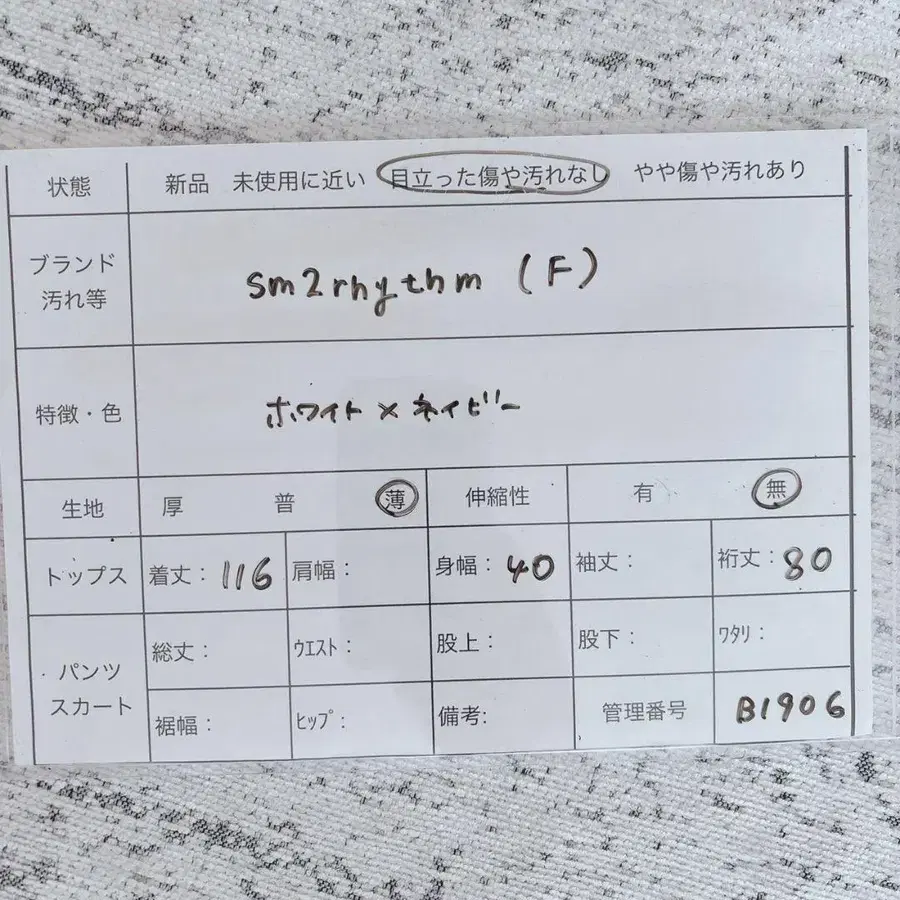 状態 新品 未使用に近い 目立った傷や汚れなし やや傷や汚れあり
ブランド
汚れ等
sm2rhythm (F)
特徴・色 ホワイト×ネイビー
生地 厚 普 薄 伸縮性 有 無
トップス 着丈：116 肩幅： 身幅：40 袖丈： 裄丈：80
パンツ
スカート
総丈： ウエスト： 股上： 股下： ワタリ：
裾幅： ヒップ： 備考: 管理番号 B1906